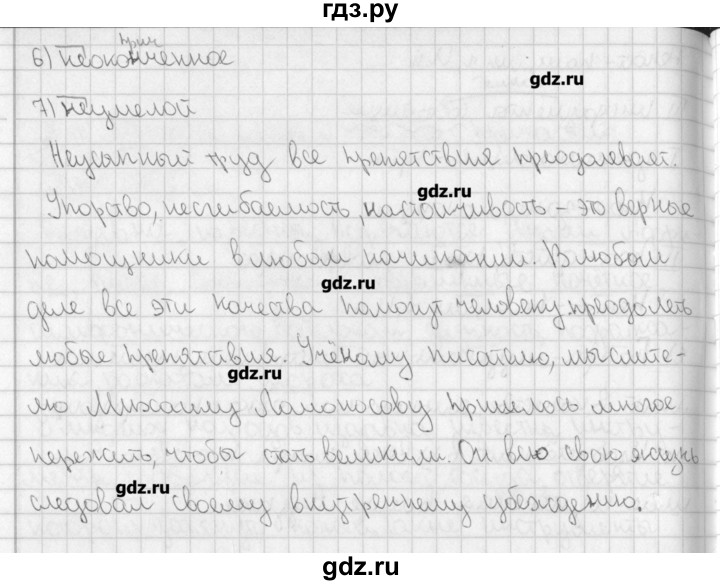 гдз.ру
прич
6) неоконченное
gdz.ru
7) неумелой
Неусыпный труд все препятствия преодолевает.
gdz.ru
Упорство, несгибаемость, настойчивость – это верные
помощники в любом начинании. В любом
gdz.ru
деле все эти качества помогут человеку преодолеть
любые препятствия. Учёному писателю, мыслите-
gdz.ru
лю Михаилу Ломоносову пришлось многое
пережить, чтобы стать великим. Он всю свою жизнь
gdz.ru
следовал своему внутреннему убеждению.
gdz.ru